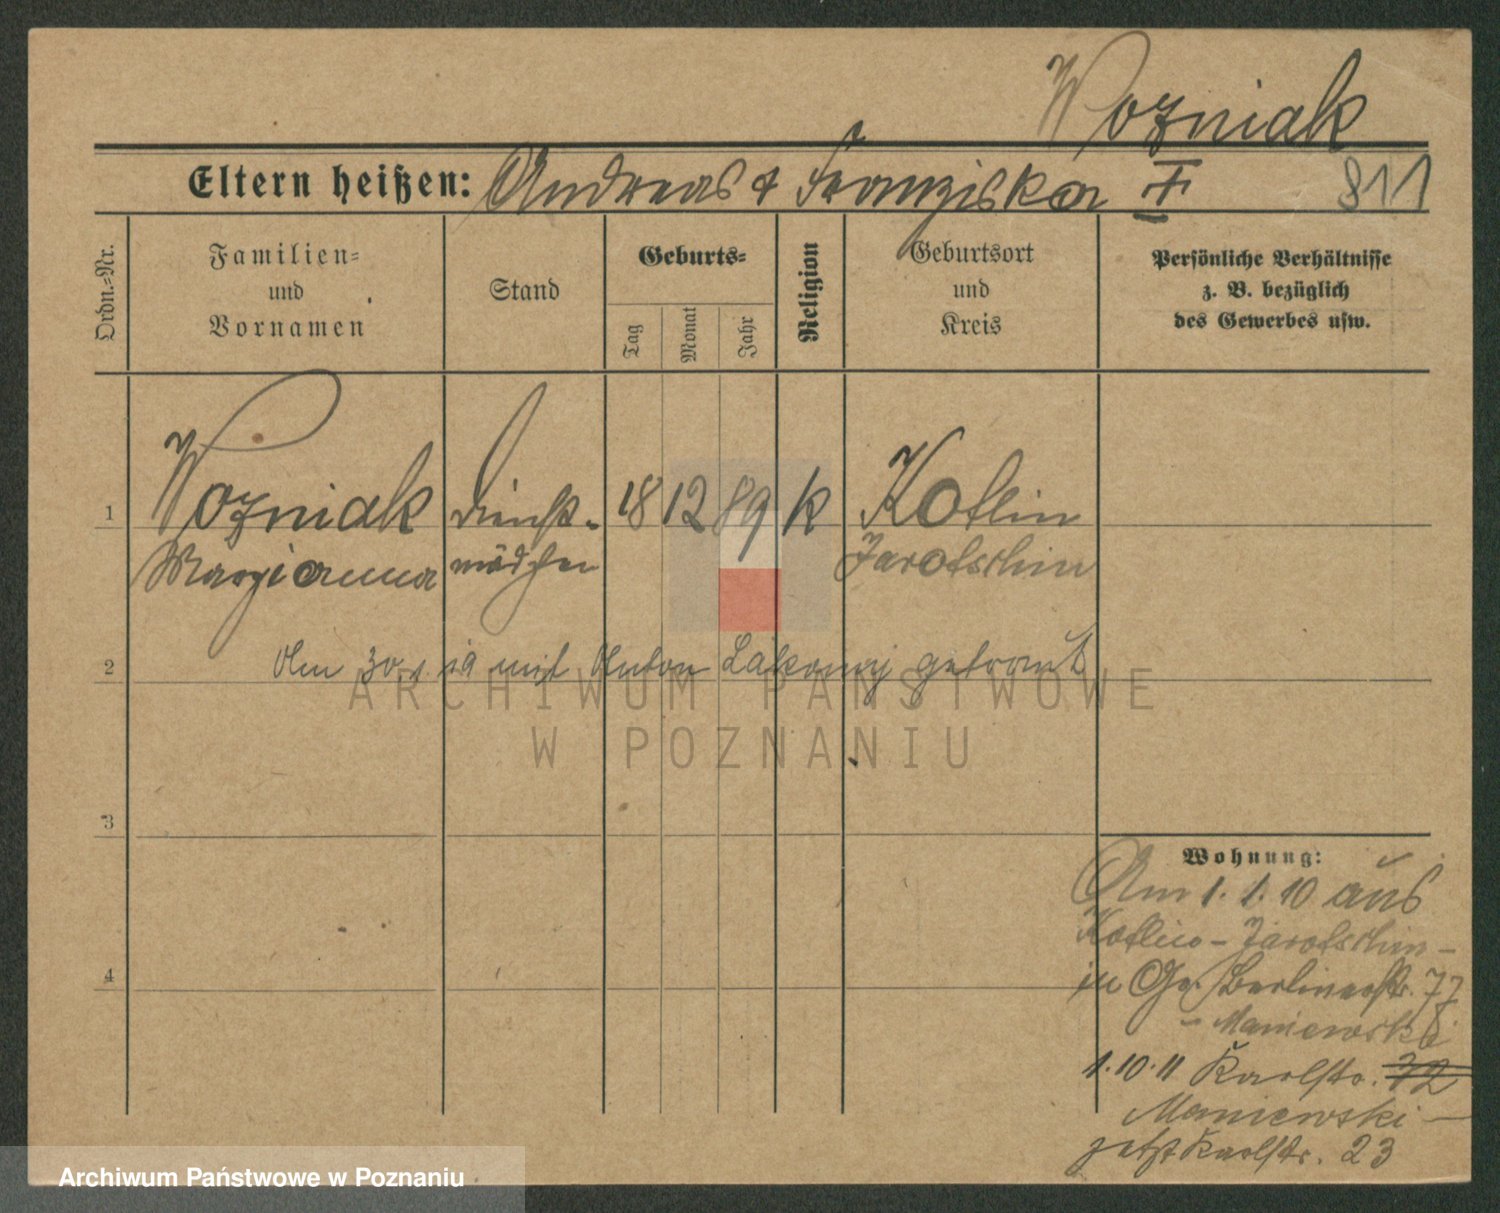 Wozniak
Eltern heißen: Andreas & Franziska F 811
Ordn.=Nr.
Familien=
und
Vornamen
Stand
Geburts=
Tag
Monat
Jahr
Religion
Geburtsort
und
Kreis
Persönliche Verhältnisse
z. B. bezüglich
des Gewerbes usw.
1 Wozniak Dienst- 18 12 89 k Kotlin
Maryianna mädchen Jarotschin
2 Am 30. mit Anton getraut
ARCHIWUM PAŃSTWOWE
W POZNANIU
3
4
Wohnung:
Am 1. 1. 10 aus
Kotlin - Jarotschin -
in Berlinerstr. 77
- Maniewski
1.10.11 Karlstr. 72
Maniewski -
jetzt Karlstr. 23
Archiwum Państwowe w Poznaniu